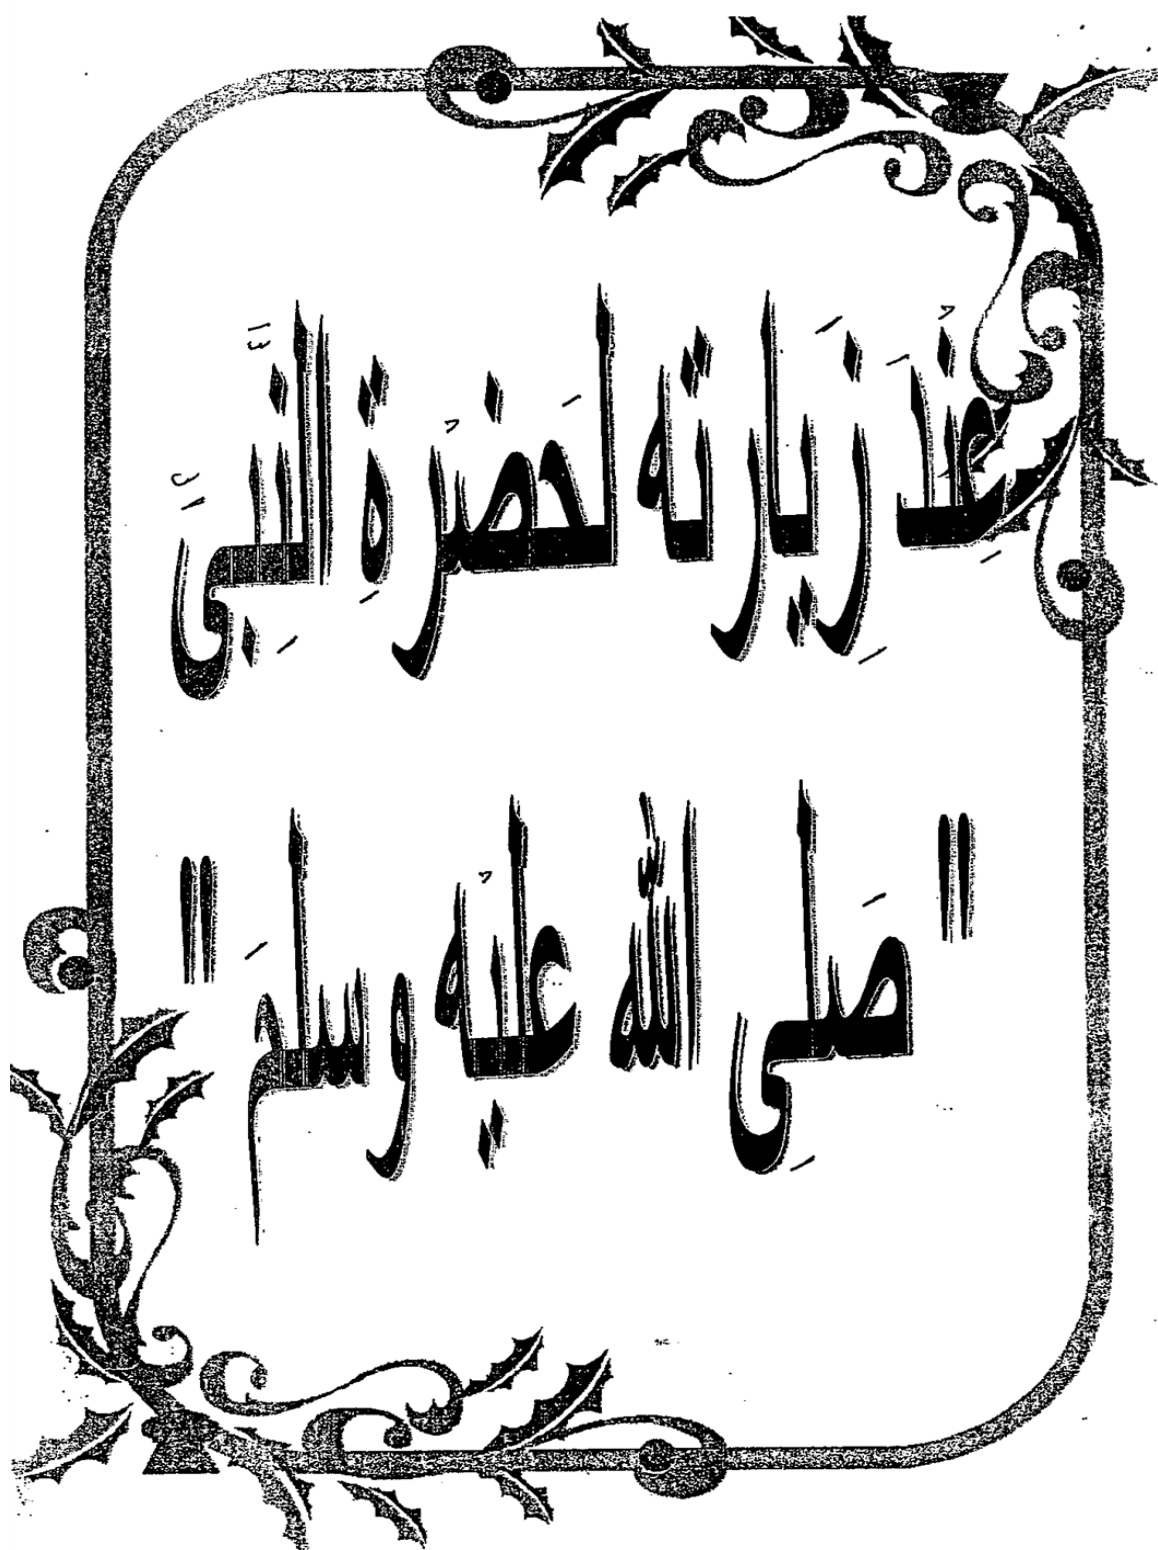 عِنْدَ زِيَارته لحَضْرَةِ النبِى
"صَلِى الله عليْه وسلمَ"